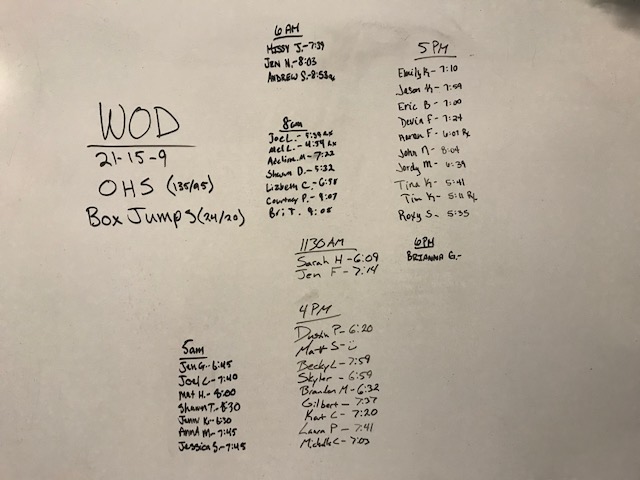 WOD
21-15-9
OHS (135/95)
Box Jumps (24/20)
5am
Jen G.- 6:45
Joel C- 7:40
Mat H.- 8:00
Shawn T.- 8:30
Jenn K- 6:30
Anna M- 7:45
Jessica S.- 7:45
6 AM
Missy J.- 7:39
Jen N.- 8:03
Andrew S.- 8:58
8am
Joe L.- 5:39 Rx
Mel L.- 4:54 Rx
Adelina M- 7:22
Shawn D.- 5:32
Lizbeth C.- 6:58
Courtney P.- 9:07
Bri T. 9:05
1130 AM
Sarah H -6:09
Jen F - 7:14
4 PM
Dustin P- 6:20
Matt S-
Becky L - 7:59
Skyler - 6:59
Brandon M - 6:32
Gilbert - 7:37
Kat C - 7:20
Laura P - 7:41
Michelle C- 7:03
5 PM
Emily K- 7:10
Jason K- 7:59
Eric B - 7:00
Devin F - 7:24
F - 6:07 Rx
John N - 8:04
Jordy M - 6:39
Tina K- 5:41
Tim K- 5:11 Rx
Roxy S- 5:35
6PM
Brianna G.-